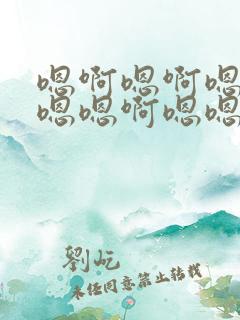 嗯啊嗯啊嗯
嗯嗯啊嗯嗯
劉屹
未经同意禁止转载